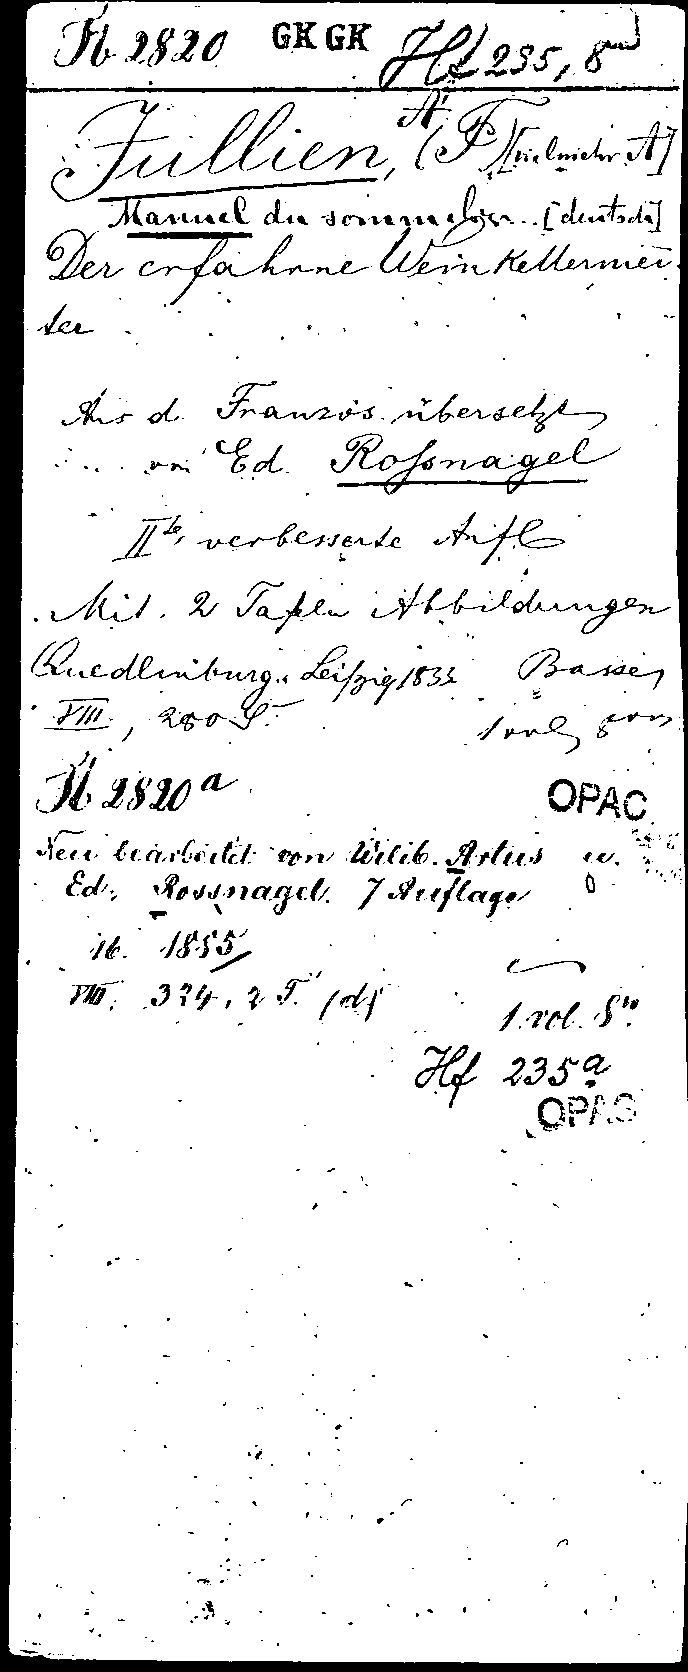 2820 GKGK Hf 235, 8
A.
Jullien, (F.) [vielmehr A]
Manuel du sommelier. [deutsch]
Der erfahrne Weinkellermeis-
ter
Aus d. Französ. übersetzt
von Ed. Rossnagel
IIte verbesserte Aufl
Mit 2 Tafeln Abbildungen
Quedlinburg u. Leipzig 1833 Basse,
VIII, 280 S. 1 vol,
2820a
OPAC
Neu bearbeitet von Wilib. Artus u.
Ed. Rossnagel. 7 Auflage
ib. 1855
VIII, 324, 2 T. (d)
1. vol. 8vo.
Hf 235a
OPAC